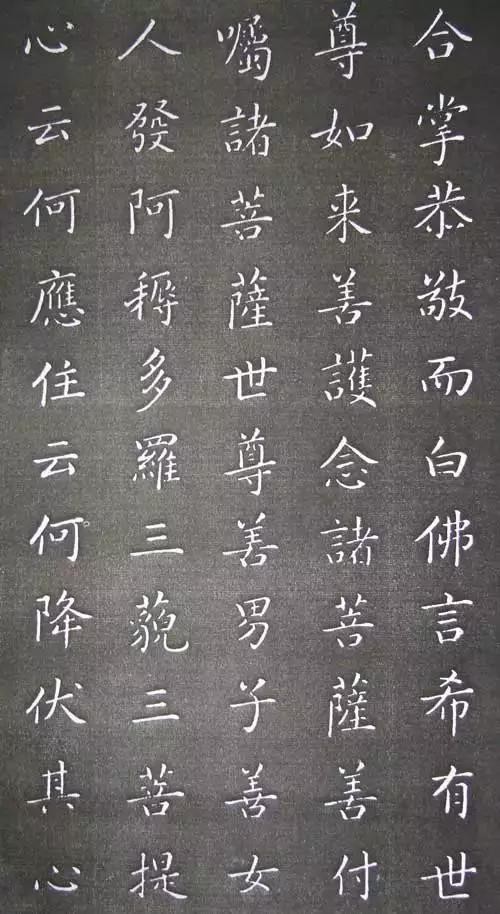 合掌恭敬而白佛言希有世
尊如来善護念諸菩薩善付
囑諸菩薩世尊善男子善女
人發阿耨多羅三藐三菩提
心云何應住云何降伏其心